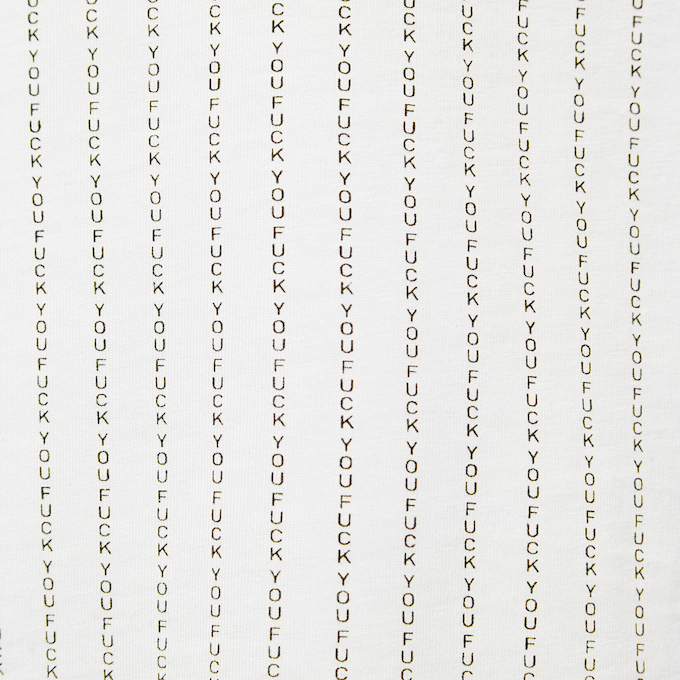 CKYOUFUCKYOUFUCKYOUFUCKYOUFUCKYOUFUCK
CKYOUFUCKYOUFUCKYOUFUCKYOUFUCKYOUFUCK
CKYOUFUCKYOUFUCKYOUFUCKYOUFUCKYOUFUCK
CKYOUFUCKYOUFUCKYOUFUCKYOUFUCKYOUFUCK
CKYOUFUCKYOUFUCKYOUFUCKYOUFUCKYOUFUC
CKYOUFUCKYOUFUCKYOUFUCKYOUFUCKYOUFUC
CKYOUFUCKYOUFUCKYOUFUCKYOUFUCKYOUFUC
UCKYOUFUCKYOUFUCKYOUFUCKYOUFUCKYOUFUC
FUCKYOUFUCKYOUFUCKYOUFUCKYOUFUCKYOUFU
FUCKYOUFUCKYOUFUCKYOUFUCKYOUFUCKYOUFU
UFUCKYOUFUCKYOUFUCKYOUFUCKYOUFUCKYOUFU